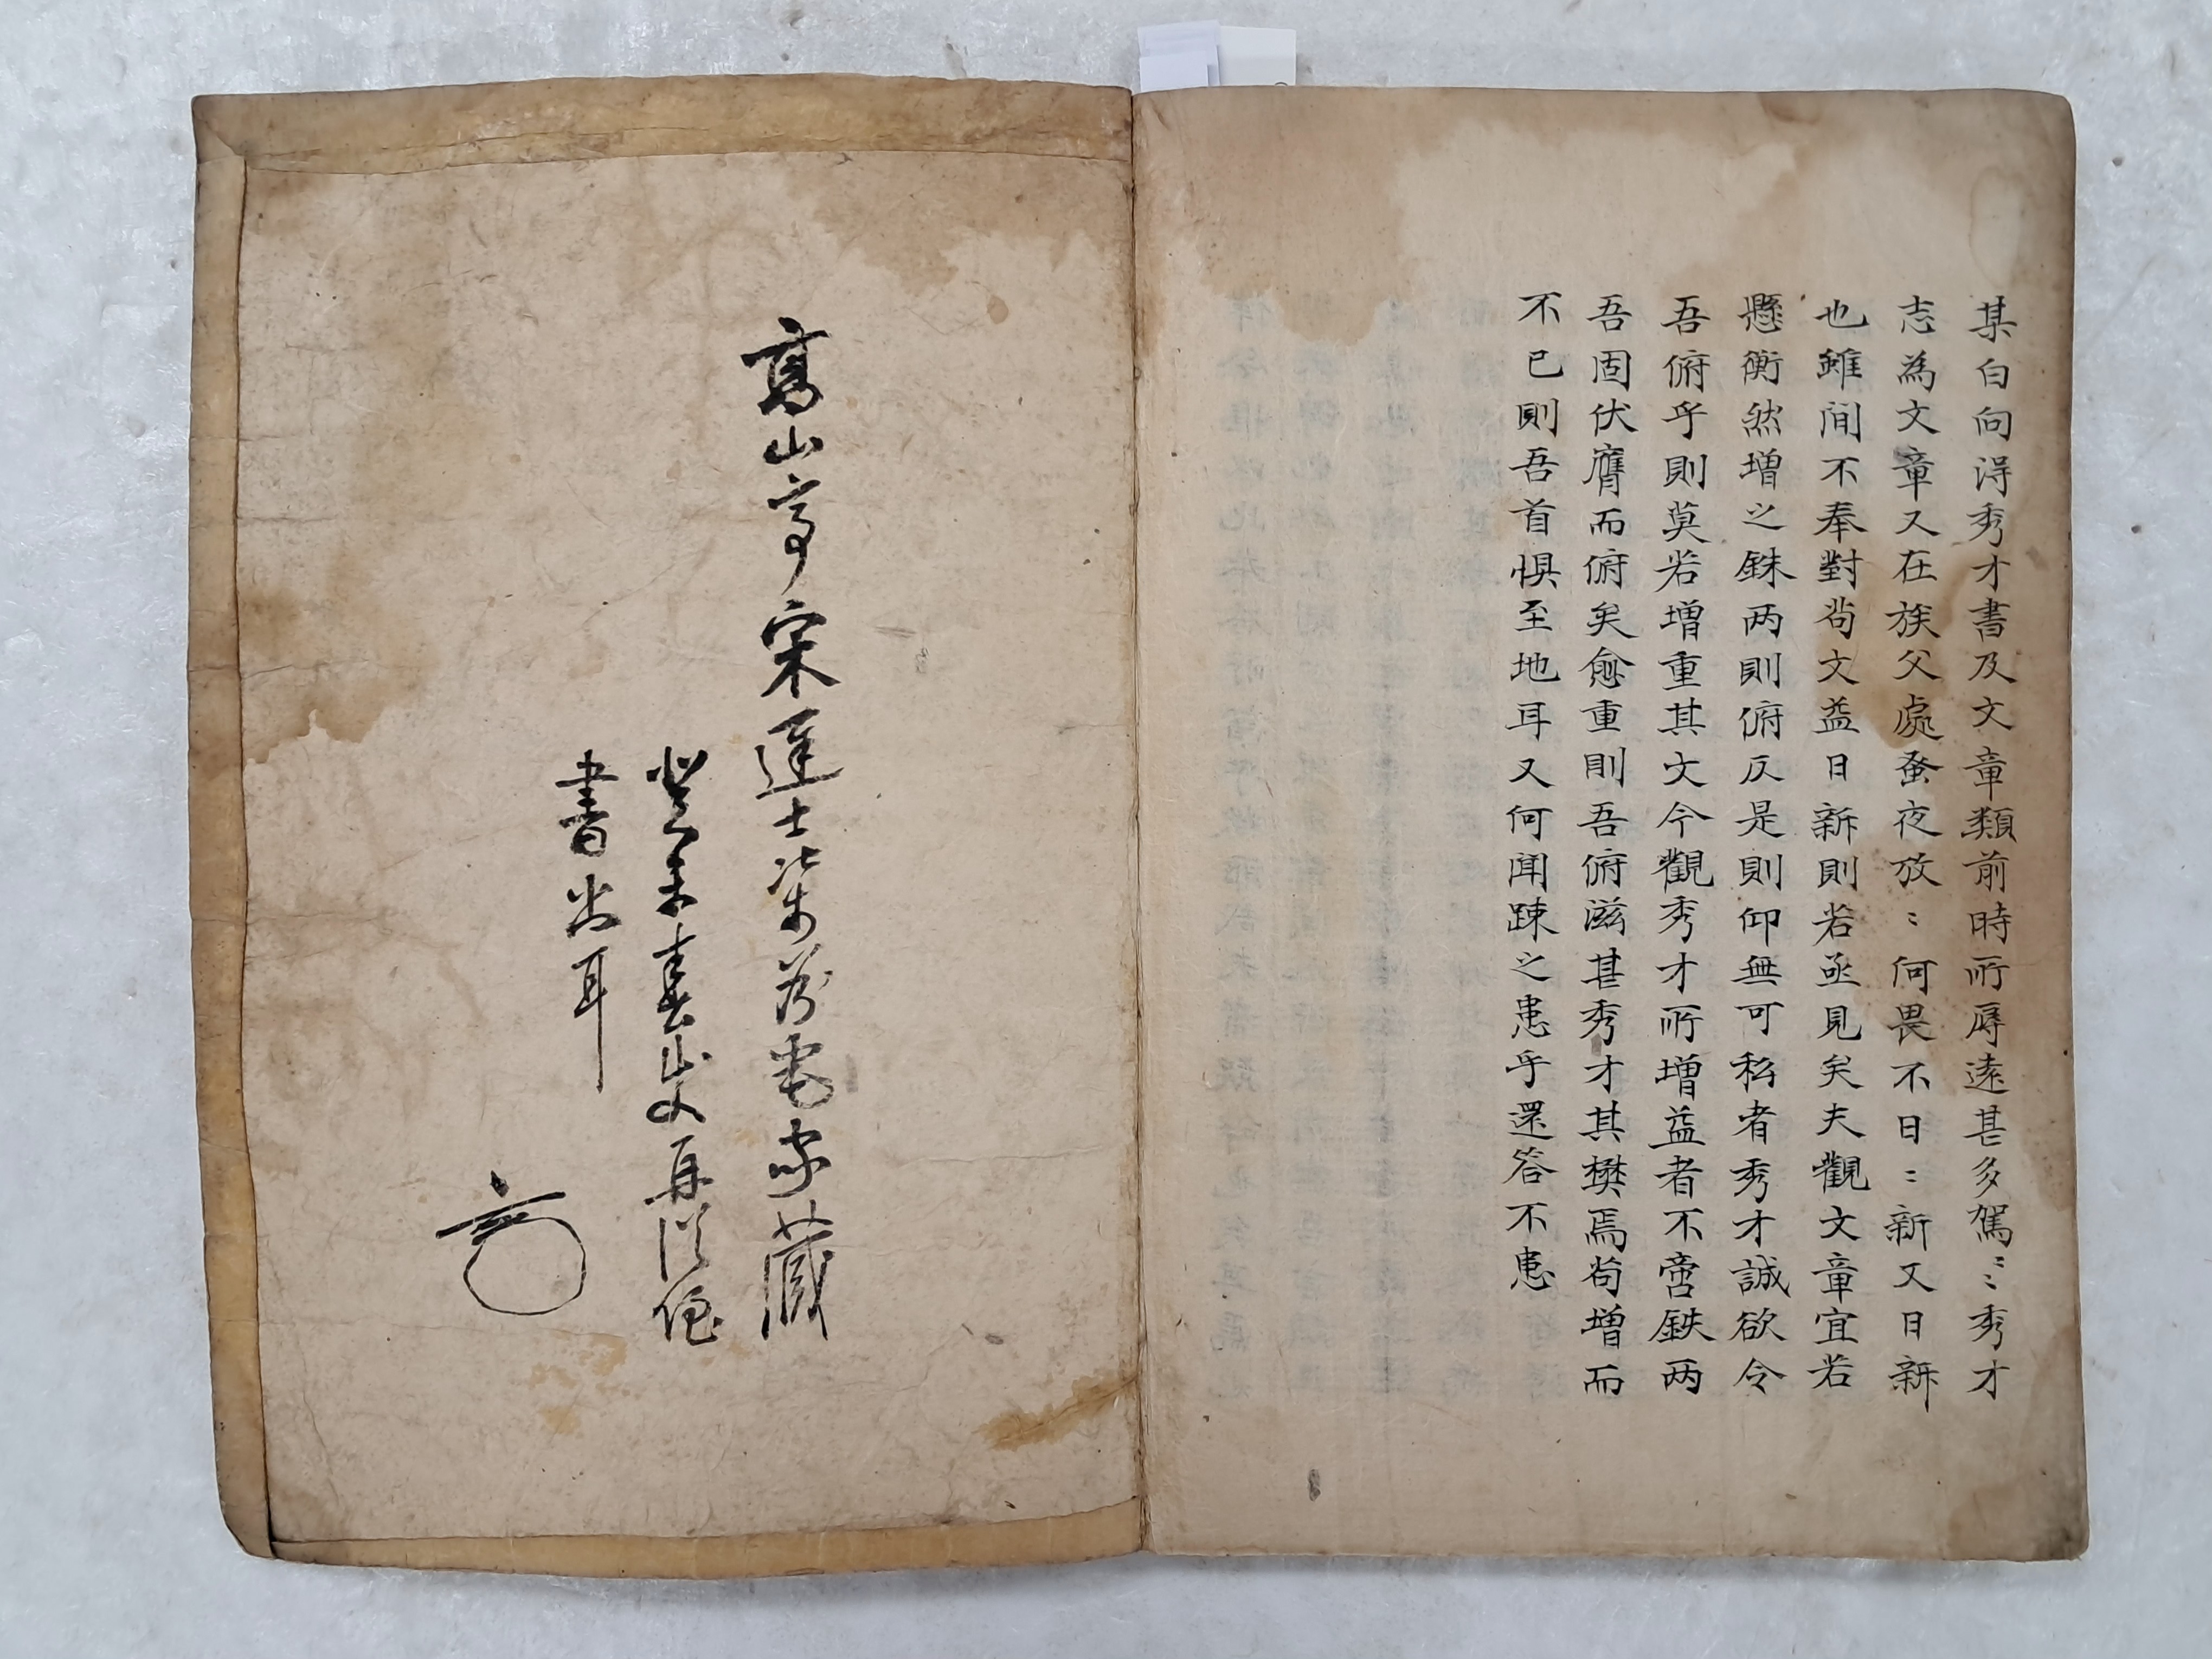 某白向得秀才書及文章類前時所辱遠甚多駕〻秀才
志為文章又在族父處蚤夜孜〻何畏不日〻新又日新
也雖间不奉對苟文益日新則若亟見矣夫觀文章宜若
懸衡然增之銖两則俯仄是則仰無可私者秀才誠欲令
吾俯乎則莫若增重其文今觀秀才所增益者不啻銖两
吾固伏膺而俯矣愈重則吾俯滋甚秀才其樊焉苟增而
不已則吾首惧至地耳又何闻踈之患乎還答不患
高山亭宋進士 家藏
癸未春 再從侄
書出耳